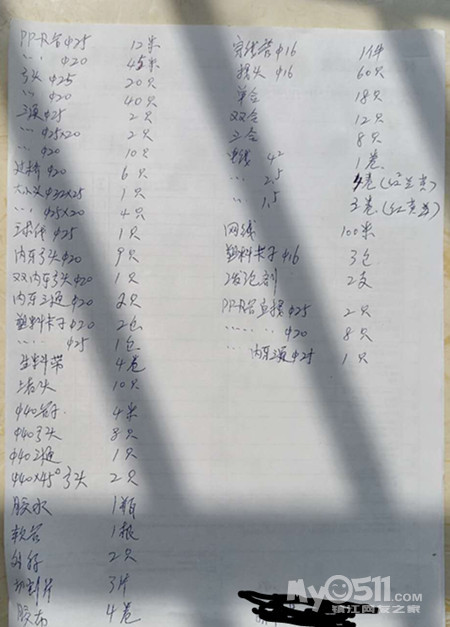 PP-R管Φ25 12米
〃 Φ20 45米
弯头 Φ25 20只
〃 Φ20 40只
三通Φ25 2只
〃 Φ25×20 2只
〃 Φ20 10只
过桥Φ20 6只
大小头Φ32×25 1只
〃 Φ25×20 4只
Φ25 1只
内牙弯头Φ20 9只
双内牙弯头Φ20 1只
内牙三通Φ20 2只
塑料卡子Φ20 2包
〃 Φ25 1包
生料带 4卷
堵头 10只
Φ40管子 4米
Φ40弯头 8只
Φ40三通 1只
Φ40×45°弯头 2只
胶水 1瓶
软管 1根
2只
切割片 3片
胶布 4卷
穿线管Φ16 1件
接头Φ16 60只
单合 18只
双合 12只
三合 8只
电线 4² 1卷
〃 2.5 4卷
〃 1.5 3卷
网线 100米
塑料卡子Φ16 3包
发泡剂 2支
PP-R管直接Φ25 2只
〃 Φ20 8只
〃 内牙三通Φ25 1只
My0511.com
镇江网友之家